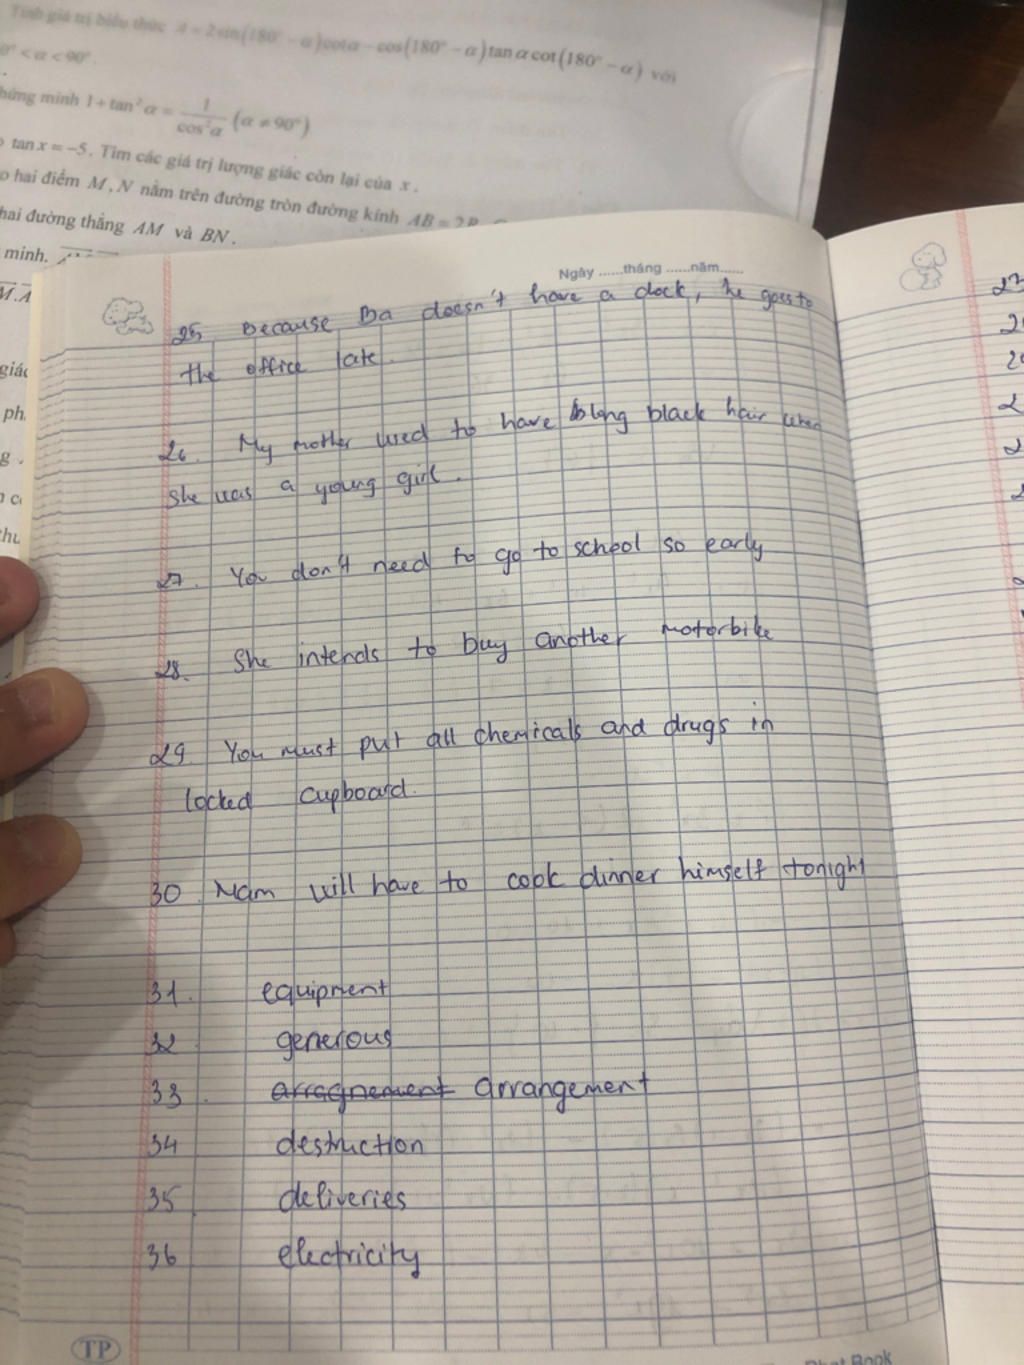 Tính giá trị biểu thức A = 2sin(180° − α)cotα − cos(180° − α)tanαcot(180° − α) với
0° < α < 90°.
hứng minh 1 + tan²α = 1/cos²α (α ≠ 90°)
tan x = −5. Tìm các giá trị lượng giác còn lại của x.
o hai điểm M, N nằm trên đường tròn đường kính AB = 2R
hai đường thẳng AM và BN.
minh.
giác
ph
g
thu
Ngày ......tháng ......năm......
25 Because Ba doesn't have a clock, he goes to
the office late.
26. My mother used to have long black hair when
she was a young girl.
27. You don't need to go to school so early
28. She intends to buy another motorbike
29 You must put all chemicals and drugs in
locked cupboard.
30. Nam will have to cook dinner himself tonight
31. equipment
32 generous
33. arragnement arrangement
34 destruction
35 deliveries
36 electricity
TP
Book